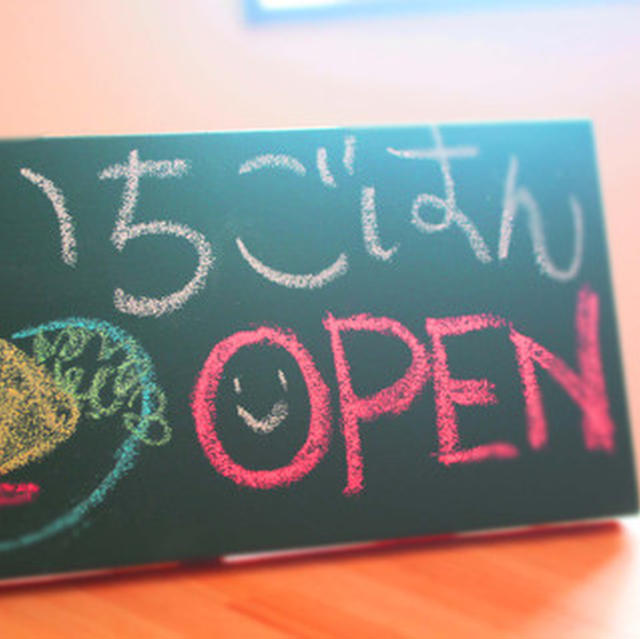 ちごはん
OPEN